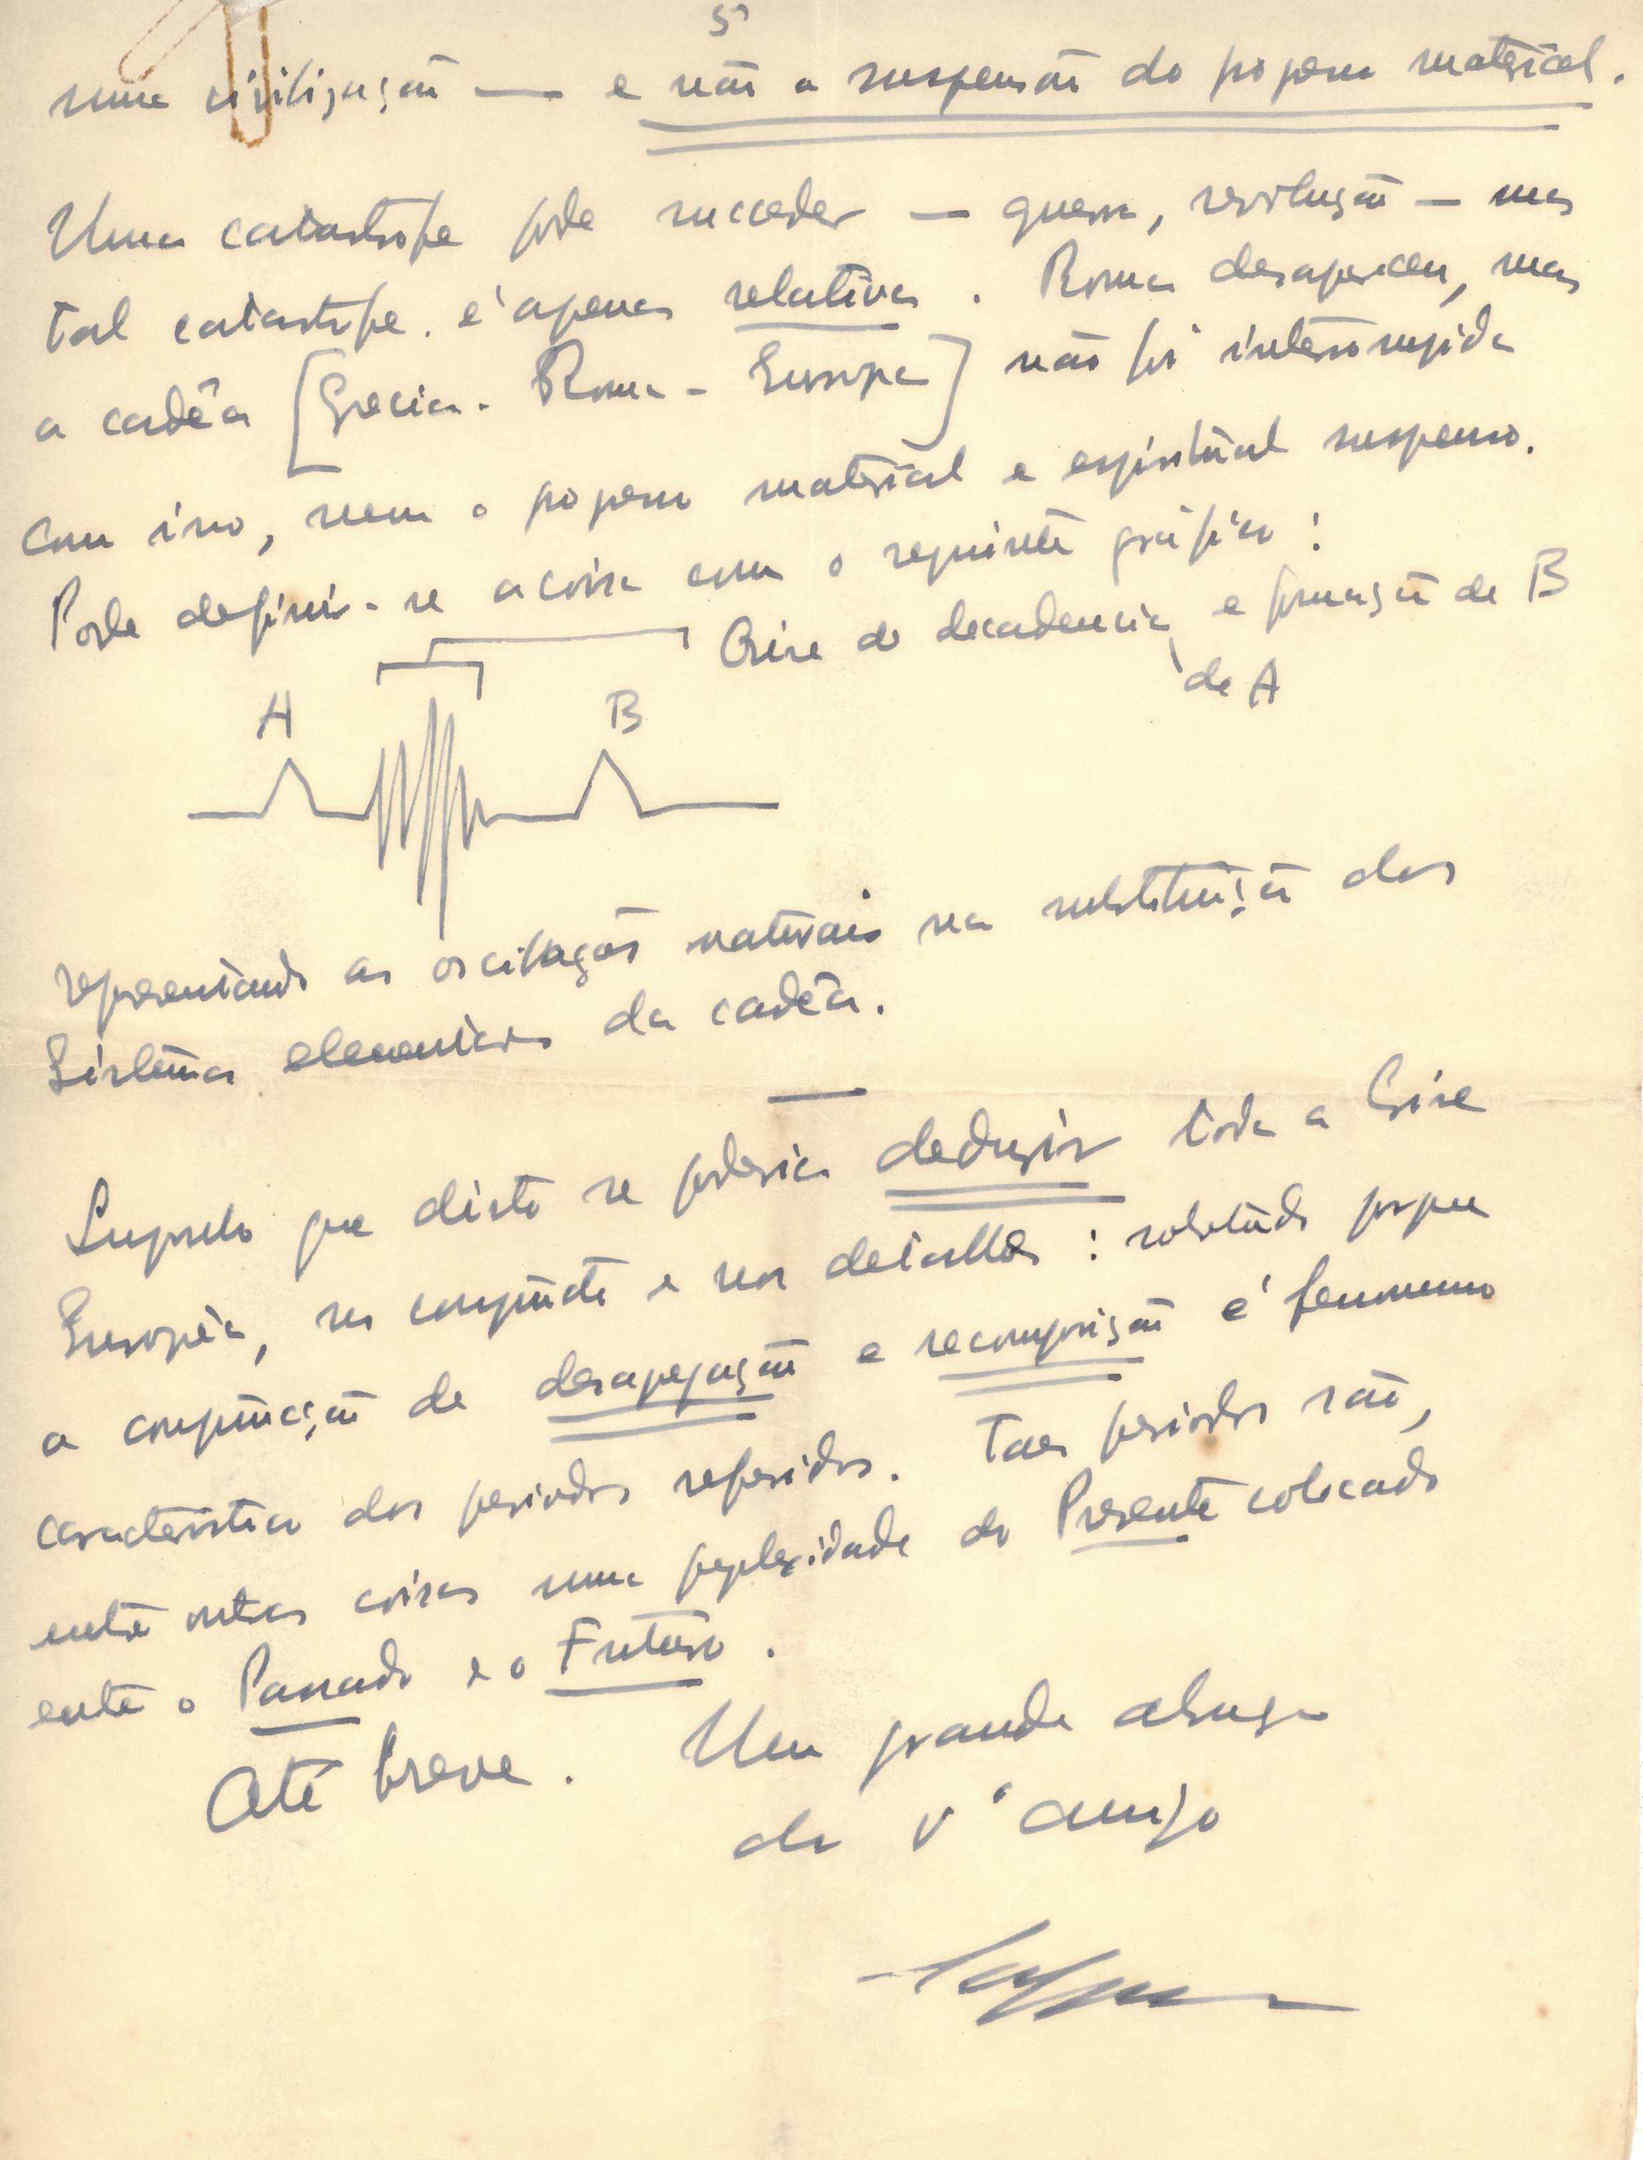 5
uma civilização — e não a suspensão do progresso material.
Uma catastrofe pode succeder — guerra, revolução — mas
tal catastrofe é apenas relativa. Roma desapareceu, mas
a cadêa [Grecia - Roma - Europa] não foi interrompida
com isso, nem o progresso material e espiritual suspenso.
Pode definir-se a coisa com o seguinte gráfico:
Crise de decadencia e formação de B
de A
A B
representando as oscilações naturais na substituição dos
Sistemas elementares da cadêa.
Suponho que disto se poderia deduzir toda a Crise
Europêa, no conjunto e nos detalhes: sobretudo porque
a conjunção de desagregação e recomposição é fenomeno
caracteristico dos periodos referidos. Taes periodos são,
entre outras coisas uma perplexidade do Presente colocado
entre o Passado e o Futuro.
Até breve. Um grande abraço
do vº amigo